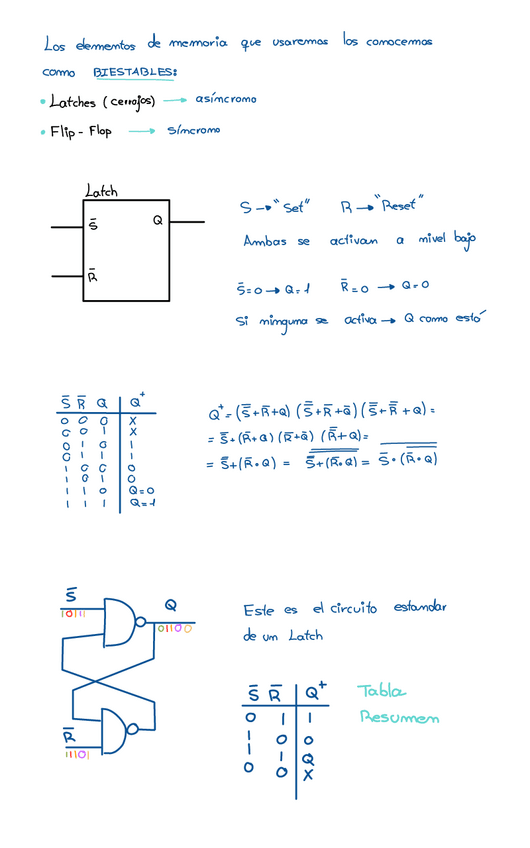 Los elementos de memoria que usaremos los conocemos
como BIESTABLES:
• Latches (cerrojos) → asíncrono
• Flip-Flop → síncrono
Latch
S̅ Q
R̅
S → "Set" R → "Reset"
Ambas se activan a nivel bajo
S̅=0 → Q=1 R̅=0 → Q=0
Si ninguna se activa → Q como está
S̅ R̅ Q Q⁺
0 0 0 X
0 0 1 X
0 1 0 1
0 1 1 1
1 0 0 0
1 0 1 0
1 1 0 Q=0
1 1 1 Q=1
S̅ Q
Este es el circuito estandar
de un Latch
S̅ R̅ Q⁺
0 1 1
1 0 0
1 1 Q
0 0 X
Tabla
Resumen
R̅